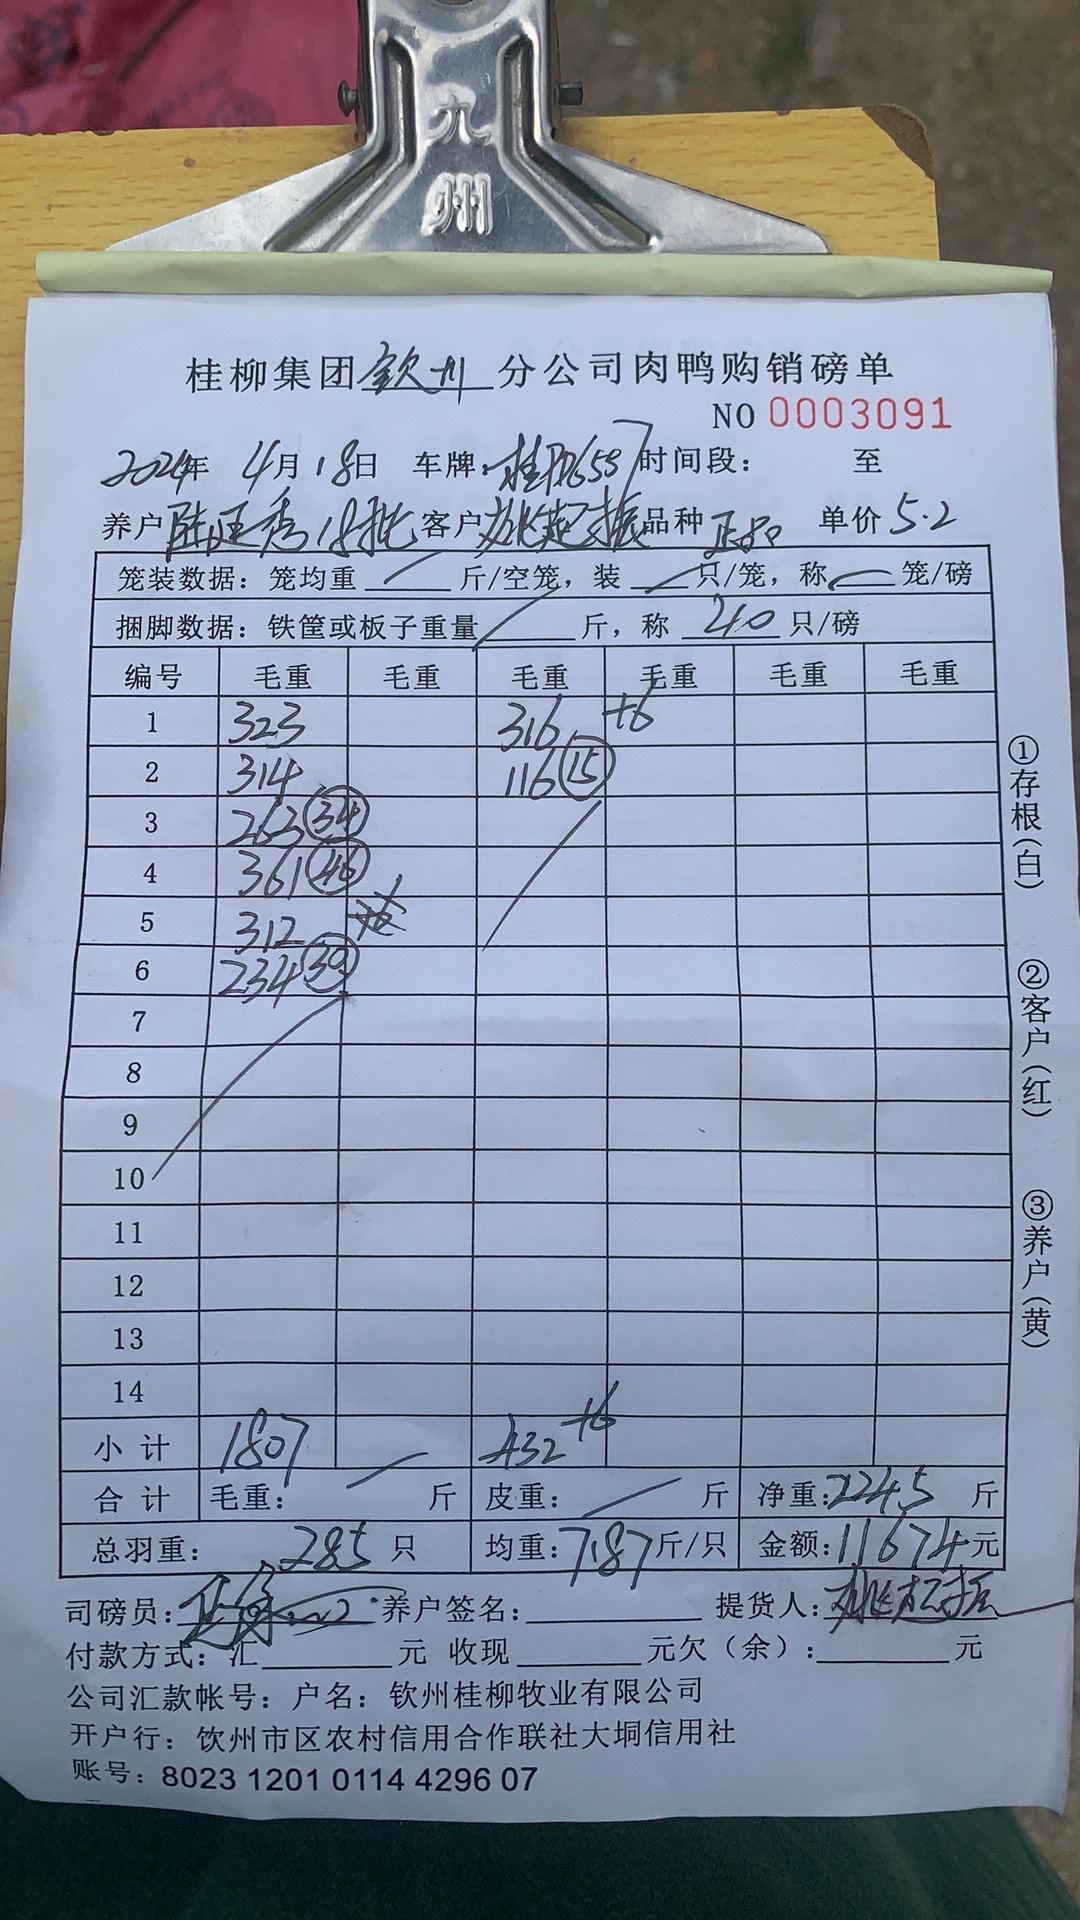 九
州
桂柳集团 钦州 分公司肉鸭购销磅单
NO 0003091
2024年 4月18日 车牌: 时间段: 至
养户 陆旺秀 18批 客户 姚起振 品种 正品 单价 5.2
笼装数据: 笼均重 斤/空笼, 装 只/笼, 称 笼/磅
捆脚数据: 铁筐或板子重量 斤, 称 40 只/磅
编号 毛重 毛重 毛重 毛重 毛重 毛重
1 323 316 +6
2 314 116 15
3 263 34
4 361 46
5 312
6 234 30
7
8
9
10
11
12
13
14
小计 1807 432 +6
合计 毛重: 斤 皮重: 斤 净重: 2245 斤
总羽重: 285 只 均重: 7.87 斤/只 金额: 11674 元
司磅员: 养户签名: 提货人: 姚起振
付款方式: 汇 元 收现 元欠(余): 元
公司汇款帐号: 户名: 钦州桂柳牧业有限公司
开户行: 饮州市区农村信用合作联社大垌信用社
账号: 8023 1201 0114 4296 07
①存根(白)
②客户(红)
③养户(黄)